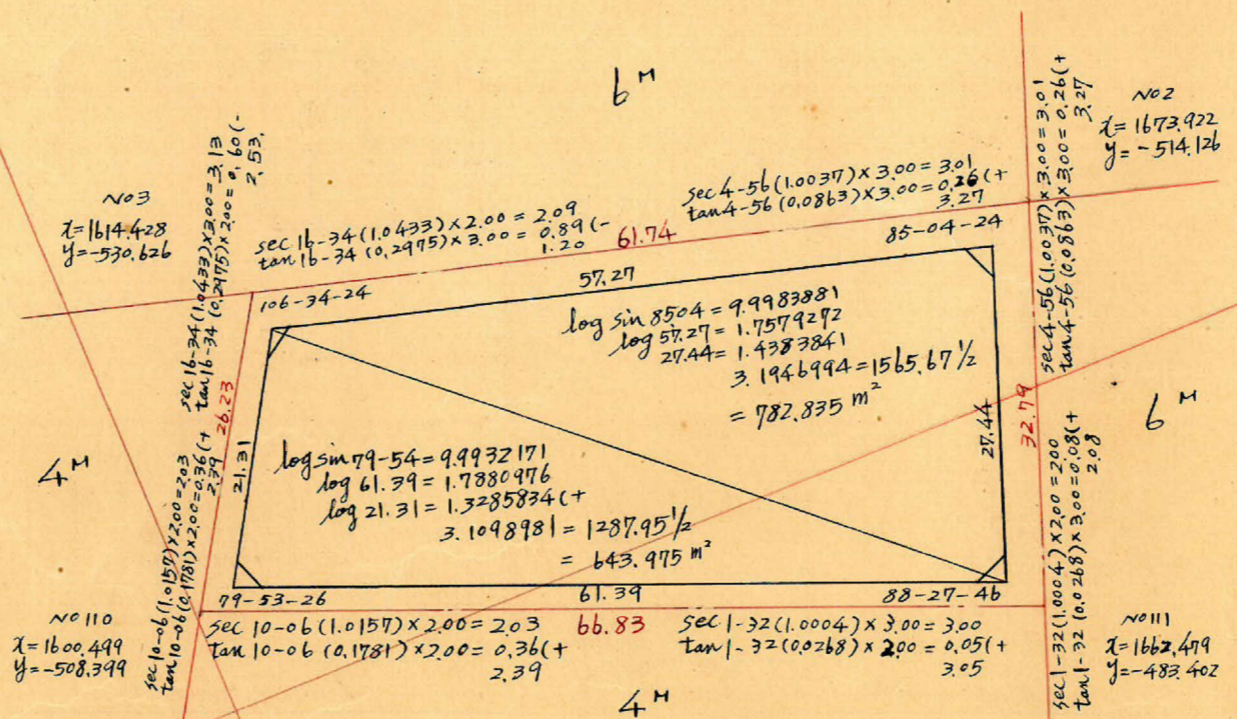 6 M
NO2
x = 1673.922
y = -514.126
NO3
x = 1614.428
y = -530.626
sec 16-34 (1.0433) × 3.00 = 3.13
tan 16-34 (0.2975) × 2.00 = 0.60 (-
2.53.
sec 16-34 (1.0433) × 2.00 = 2.09
tan 16-34 (0.2975) × 3.00 = 0.89 (-
1.20
61.74
sec 4-56 (1.0037) × 3.00 = 3.01
tan 4-56 (0.0863) × 3.00 = 0.26 (+
3.27
sec 4-56 (1.0037) × 3.00 = 3.01
tan 4-56 (0.0863) × 3.00 = 0.26 (+
3.27
106-34-24
57.27
85-04-24
log sin 8504 = 9.9983881
log 57.27 = 1.7579272
27.44 = 1.4383841
3.1946994 = 1565.67 1/2
= 782.835 m²
26.23
21.31
27.44
32.79
6 M
4 M
log sin 79-54 = 9.9932171
log 61.39 = 1.7880976
log 21.31 = 1.3285834 (+
3.1098981 = 1287.95 1/2
= 643.975 m²
sec 10-06 (1.0157) × 2.00 = 2.03
tan 10-06 (0.1781) × 2.00 = 0.36 (+
2.39
79-53-26
61.39
88-27-46
sec 1-32 (1.0004) × 2.00 = 2.00
tan 1-32 (0.0268) × 3.00 = 0.08 (+
2.08
NO 110
x = 1600.499
y = -508.399
sec 10-06 (1.0157) × 2.00 = 2.03
tan 10-06 (0.1781) × 2.00 = 0.36 (+
2.39
66.83
sec 1-32 (1.0004) × 3.00 = 3.00
tan 1-32 (0.0268) × 2.00 = 0.05 (+
3.05
NO 111
x = 1662.479
y = -483.402
4 M